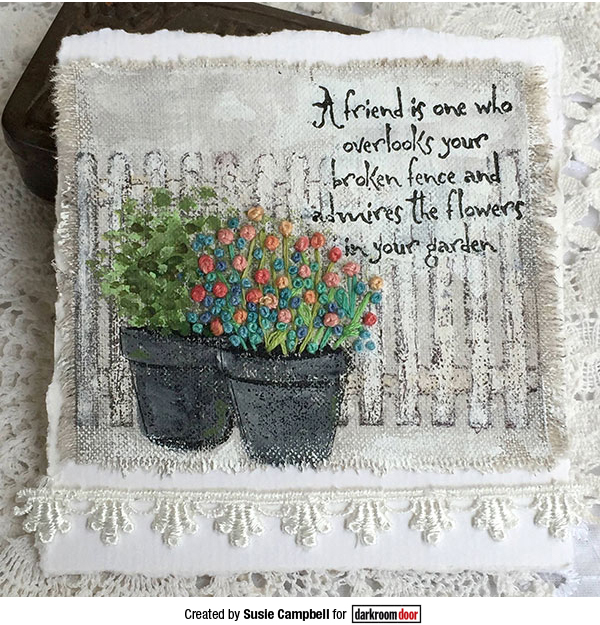 A friend is one who
overlooks your
broken fence and
admires the flowers
in your garden
Created by Susie Campbell for darkroomdoor